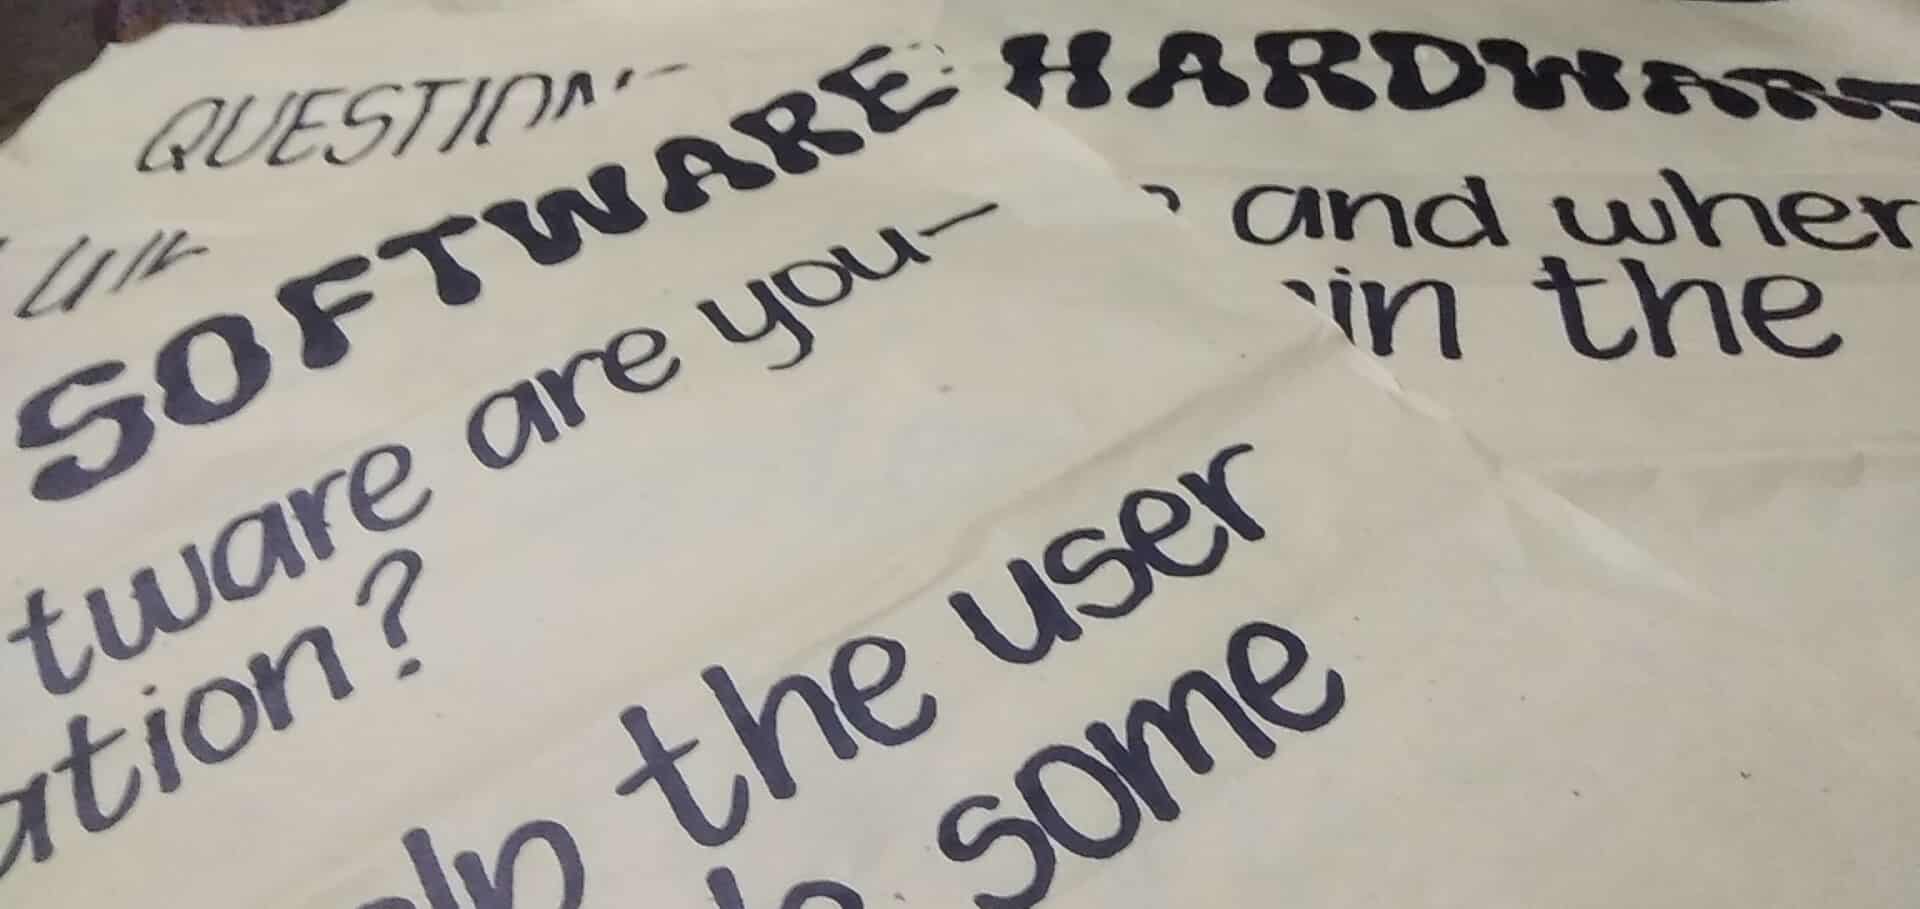 QUESTION
SOFTWARE
tware are you-
ation?
the user
some
HARDWARE
and when
in the